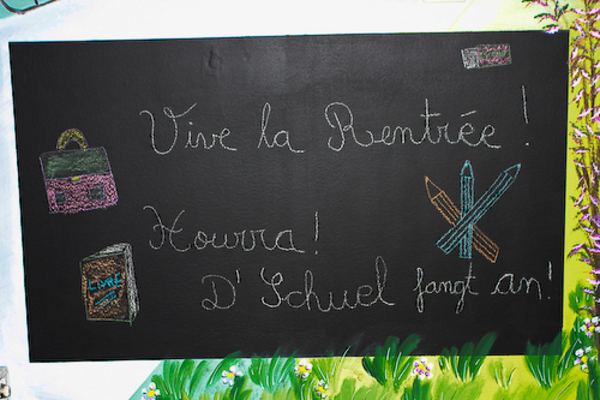 Vive la Rentrée !
Hourra !
D'Schuel fangt an !
LIVRE